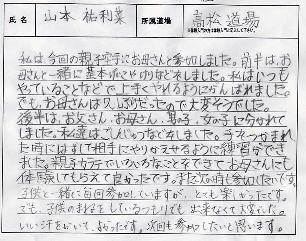 氏名 山本祐利菜 所属道場 高松道場
私は、今回の親子空手にお母さんと参加しました。前半は、お
母さんと一緒に基本や をしました。私はいつも
やっていることなので上手くやれるようにがんばれました。
でも、お母さんは久しぶりだったので大変そうでした。
後半は、お父さん、お母さん、男の子、女の子に分かれて
しました。私達はごしんじゅつなどをしました。手をつかまれ
た時にはずして相手にやりかえせるように練習ができ
ました。親子カラテでいろいろなことをできてお母さんにも
体験してもらえて良かったです。また次の時も参加したいです。
子供と一緒に毎回参加していますが、とても楽しかったです。
でも、子供のまねをしているつもりでも出来なくて大変でした。
いい汗をかいて、よかったです。次回も参加したいと思います。